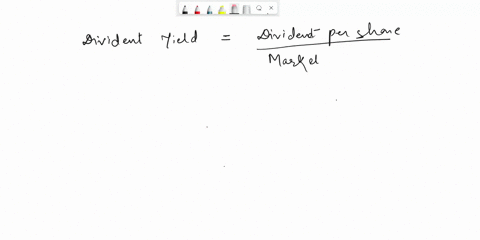 Divident Yield = Divident per share
Market